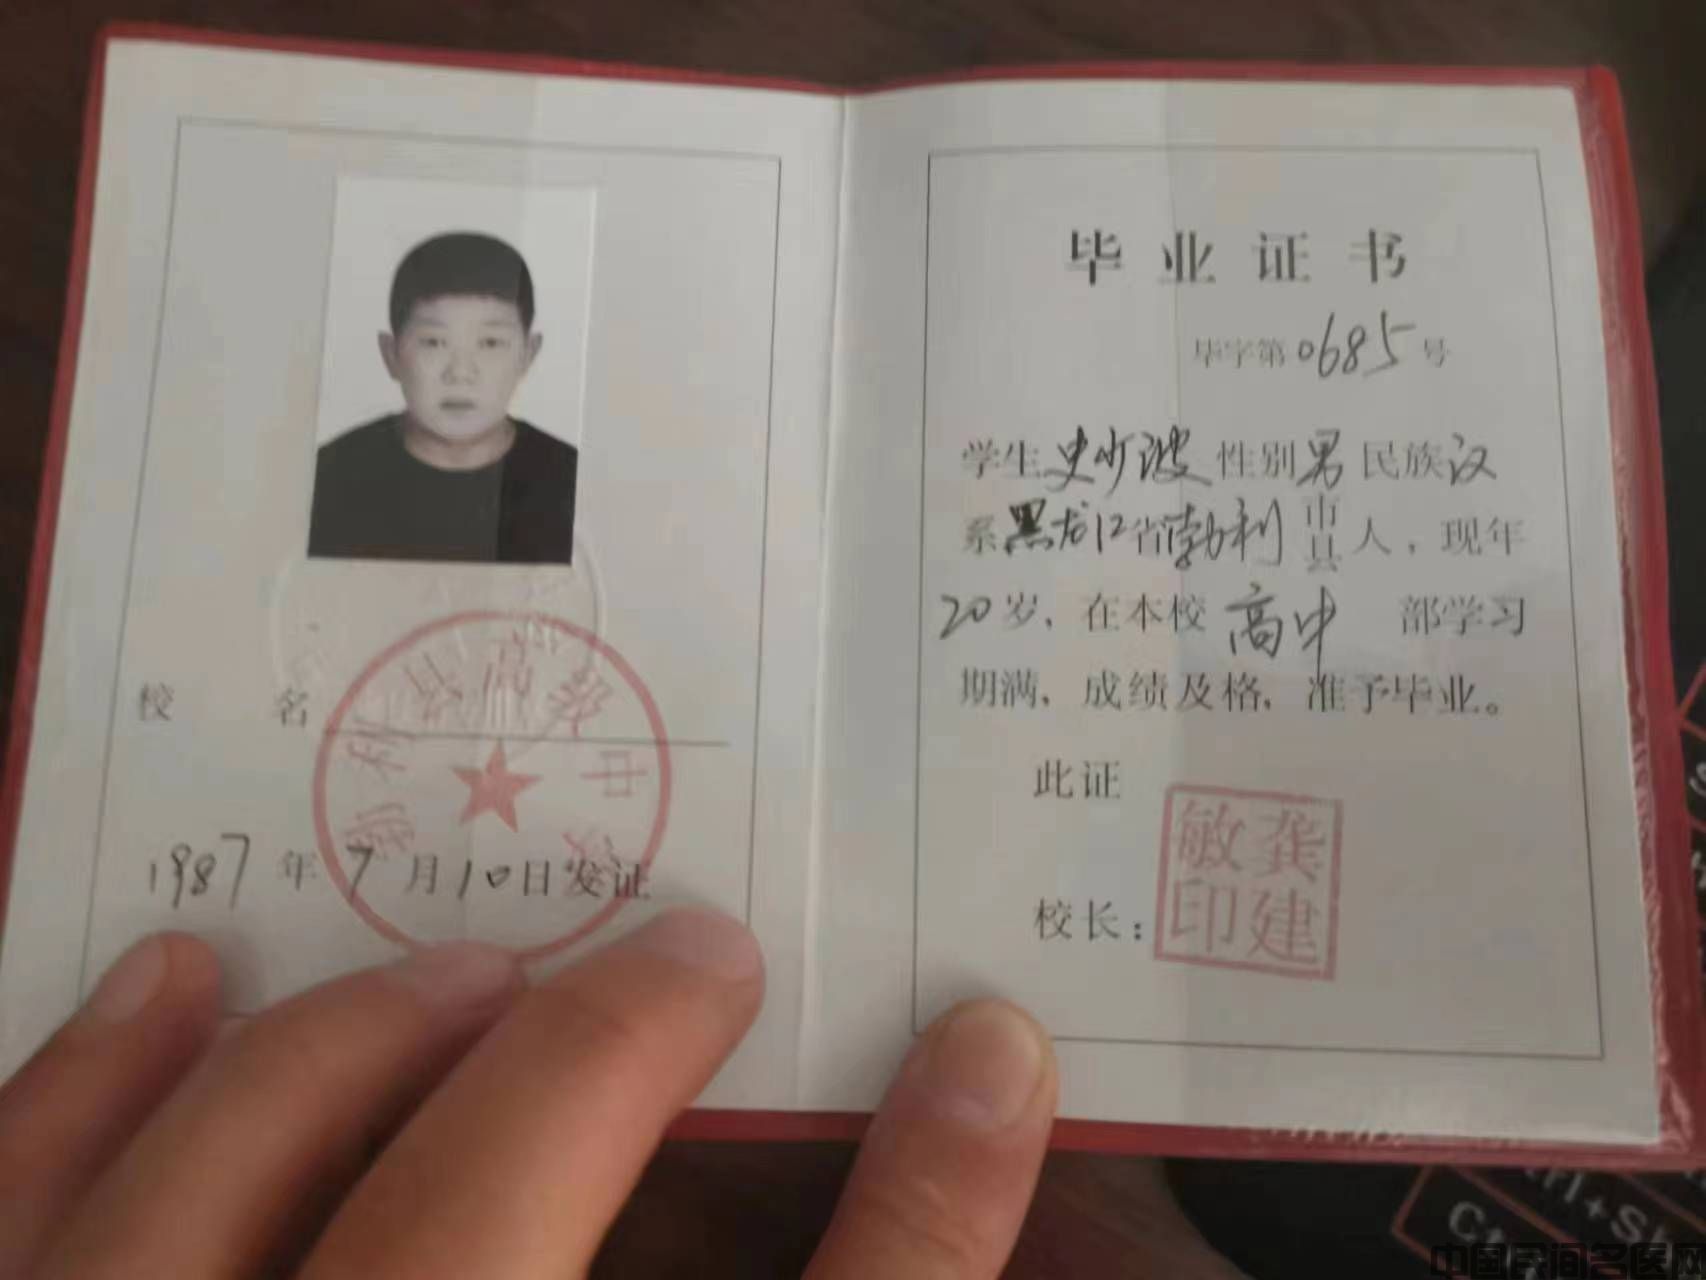 校 名
1987年7月10日发证
毕业证书
毕字第0685号
学生史少波性别男民族汉
系黑龙江省勃利市县人，现年
20岁，在本校高中部学习
期满，成绩及格，准予毕业。
此证
校长：
龚建敏印
Ctrl+Sh
中国民间名医网